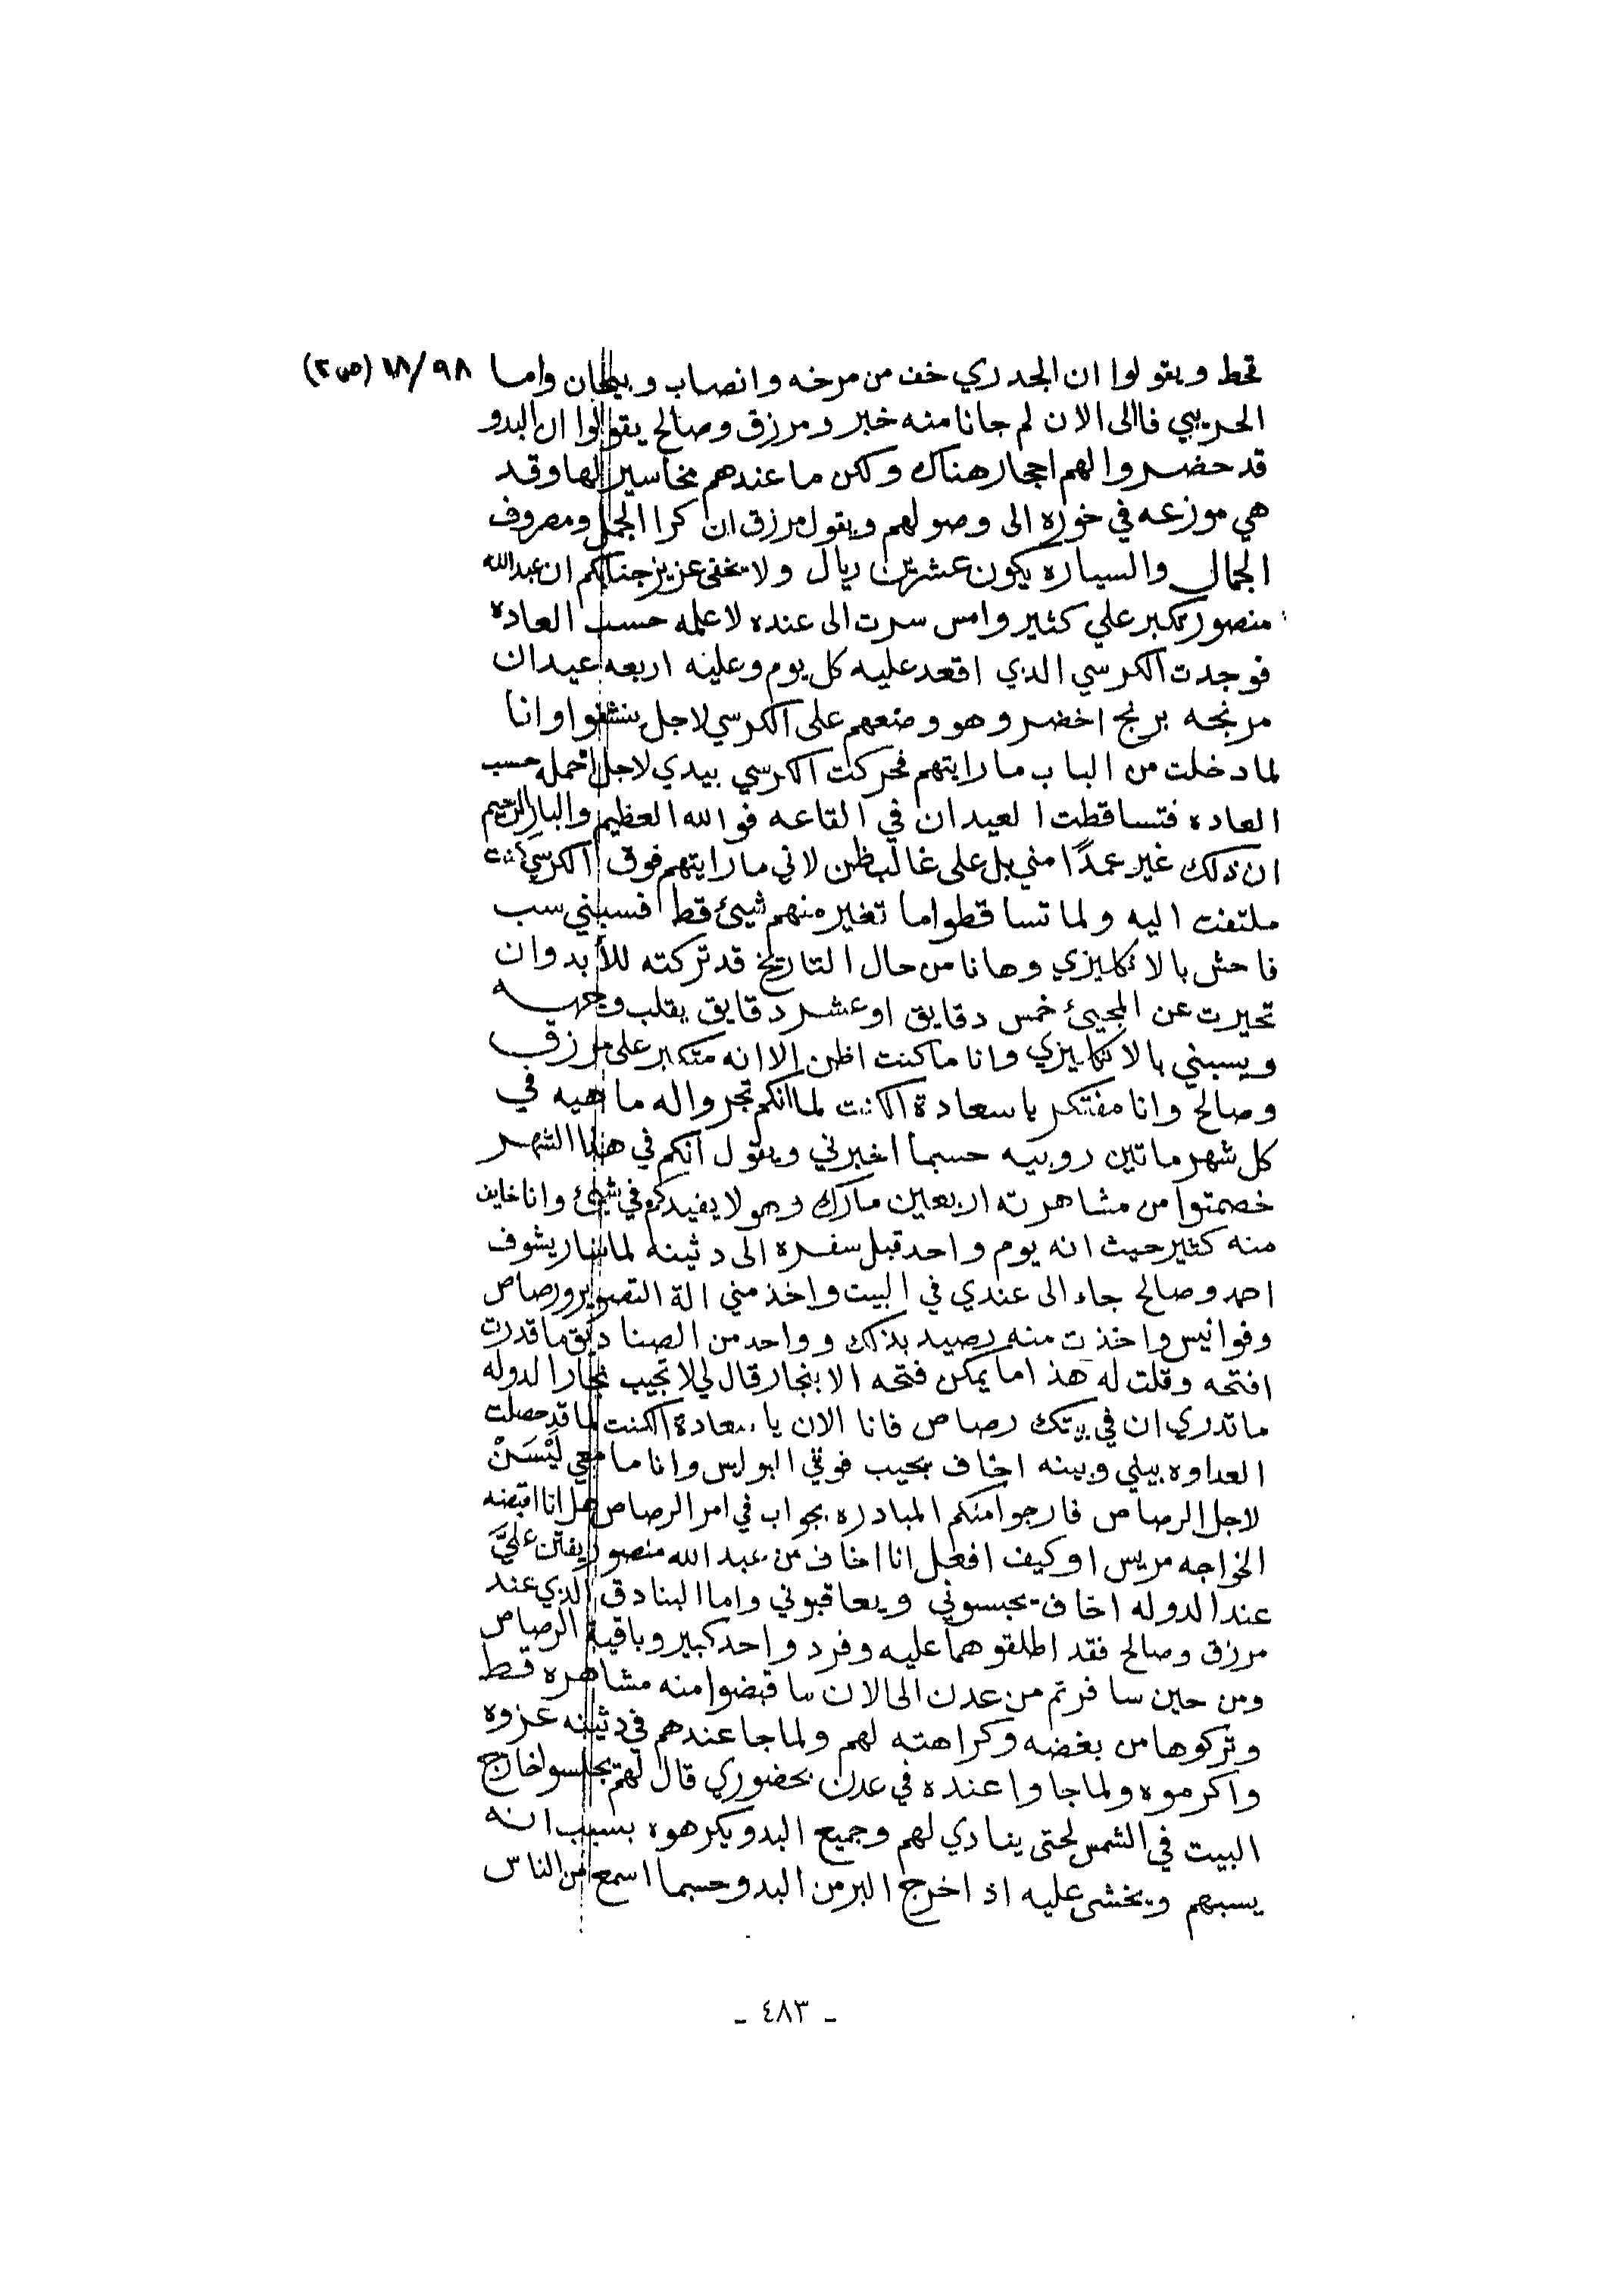 قحط ويقولوا ان الجدري خف من مرخه وانصاب وبيحان واما ١٨/٩٨ (ص٣)
الحريبي فالى الان لم جانا منه خبر ومرزق وصالح يقولوا ان البدو
قد حضروا لهم احجار هناك ولكن ما عندهم مخاسير لها وقد
هي موزعه في خوره الى وصولهم ويقول مرزق ان كرا الجمل ومصروف
الجمال والسياره يكون عشرين ريال ولا يخفى عزيز جنابكم ان عبدالله
منصور تكبر علي كثير وامس سرت الى عنده لاعلمه حسب العاده
فوجدت الكرسي الدي اقعد عليه كل يوم وعليه اربعه عيدان
مرنجه برنج اخضر وهو وضعهم على الكرسي لاجل ينشفوا وانا
لما دخلت من الباب ما رايتهم فحركت الكرسي بيدي لاجل احمله حسب
العاده فتساقطت العيدان في القاعه فوالله العظيم والبار الرحيم
ان ذلك غير عمدًا مني بل على غالب ظن لاني ما رايتهم فوق الكرسي كنت
ملتفت اليه ولما تساقطوا ما تغير منهم شيئ قط فسبني سب
فاحش بالانكليزي وهانا من حال التاريخ قد تركته للأبد وان
تحيرت عن المجيئ خمس دقايق او عشر دقايق يقلب وجهه
ويسبني بالانكليزي وانا ما كنت اظن الا انه متكبر على مرزق
وصالح وانا مفتكر يا سعادة الكانت لما انكم تجروا له ماهيه في
كل شهر ماتين روبيه حسبما اخبرني ويقول انكم في هذا الشهر
خصمتوا من مشاهرته اربعين مارك وهو لا يفيدكم في شيئ وانا خايف
منه كثير حيث انه يوم واحد قبل سفره الى دثينه لما سار يشوف
احمد وصالح جاء الى عندي في البيت واخذ مني الة التصوير ورصاص
وفوانيس واخذت منه رصيد بذلك وواحد من الصنادق ما قدرت
افتحه وقلت له هذا ما يمكن فتحه الا بنجار قال لي لا تجيب نجار الدوله
ماتدري ان في بيتك رصاص فانا الان يا سعادة الكنت لما قد حصلت
العداوه بيني وبينه اخاف يجيب فوقي البوليس وانا ما معي لَيْسَنْ
لاجل الرصاص فارجوا منكم المبادره بجواب في امر الرصاص هل انا اقبضه
الخواجه مريس او كيف افعل انا اخاف من عبدالله منصور يفتن عليَّ
عند الدوله اخاف يحبسوني ويعاقبوني واما البنادق الدي عند
مرزق وصالح فقد اطلقوهما عليه وفرد واحد كبير وباقية الرصاص
ومن حين سافرتم من عدن الى الان ما قبضوا منه مشاهره قط
وتركوها من بغضه وكراهته لهم ولما جا عندهم في دثينه عزوه
واكرموه ولما جاوا عنده في عدن بحضوري قال لهم يجلسوا خارج
البيت في الشمس لحتى ينادي لهم وجميع البدو يكرهوه بسبب انه
يسبهم ويخشى عليه اذا خرج البر من البدو حسبما اسمع من الناس
- ٤٨٣ -